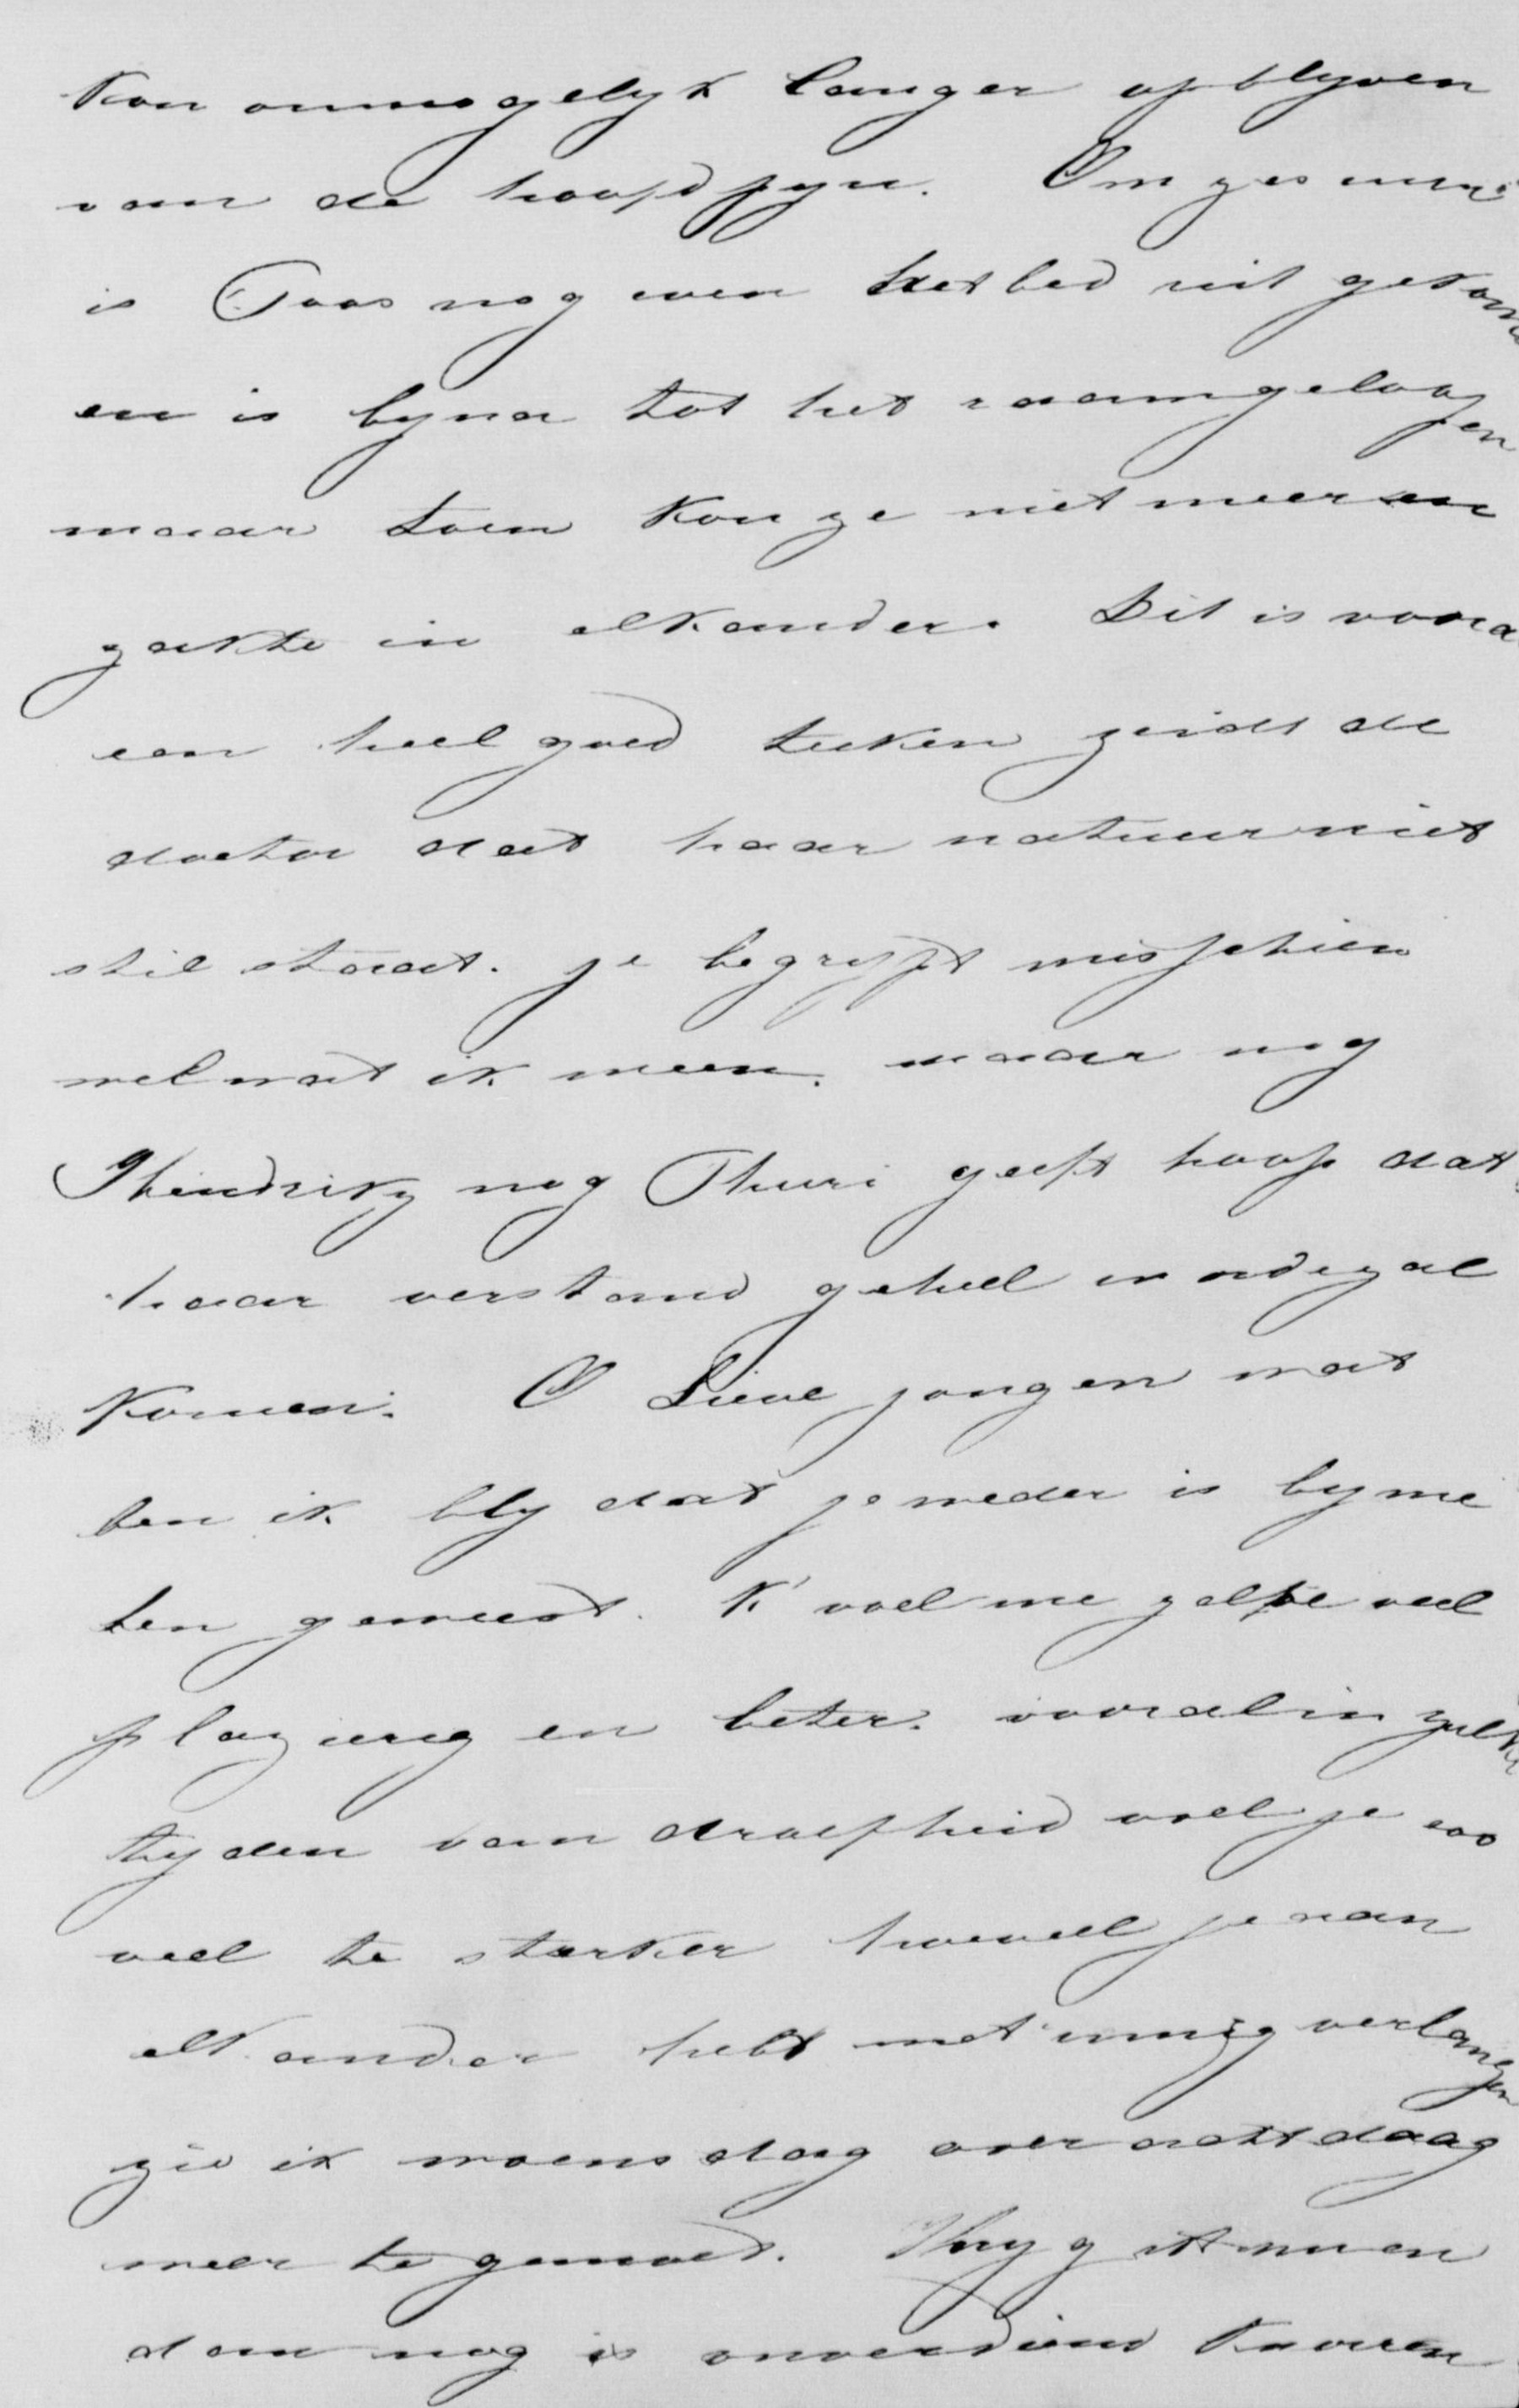 kon onmogelyk langer opblyven
van de hoofdpyn. Om zes uur
is Toos nog even het bed uit gekomen
en is byna tot het raam geloopen
maar toen kon ze niet meer en
zakte in elkander. Dit is vooral
een heel goed teeken zeidt de
doctor dat haar natuur niet
stil staat. je begrypt misschien
wel wat ik meen. maar nog
nog Thuri geeft hoop dat
haar verstand geheel in orde zal
komen. O Lieve jongen wat
ben ik bly dat je weder is by me
ben geweest. K' voel me zelve veel
plazierig en beter. vooral in zulke
tyden van droefheid voel je zoo
veel te sterker hoeveel je van
elkander hebt met innig verlangen
zie ik woensdag over acht daag
weer te gemoed. Kryg ik nu en
dan nog is onverdiend knorren